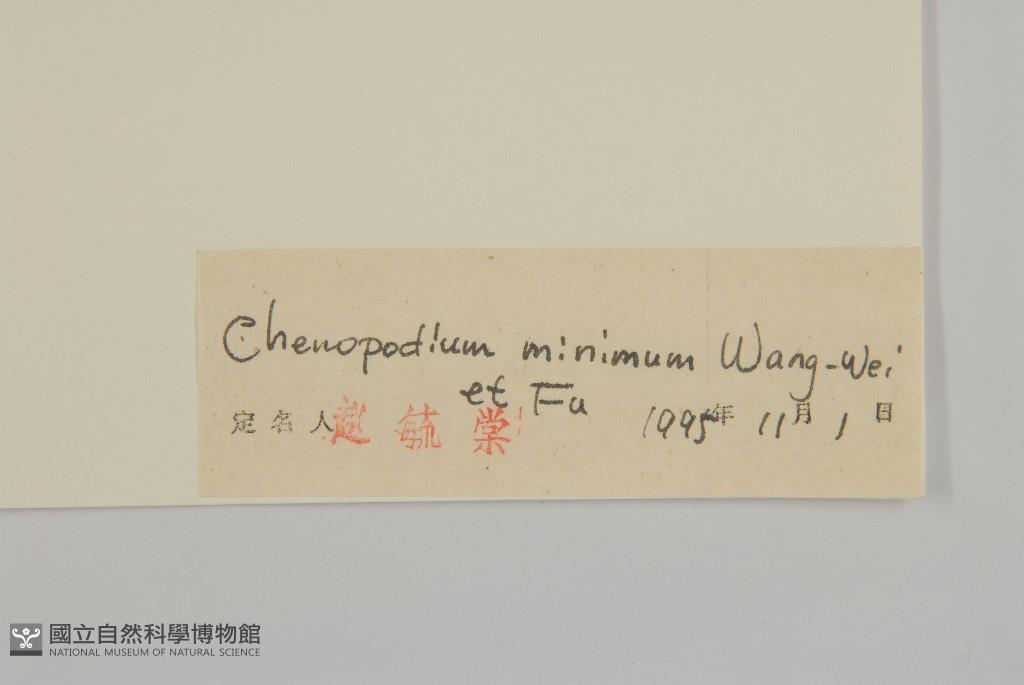 Chenopodium minimum Wang-Wei
et Fu
定名人 趙毓棠 1995年 11月 1日
國立自然科學博物館
NATIONAL MUSEUM OF NATURAL SCIENCE